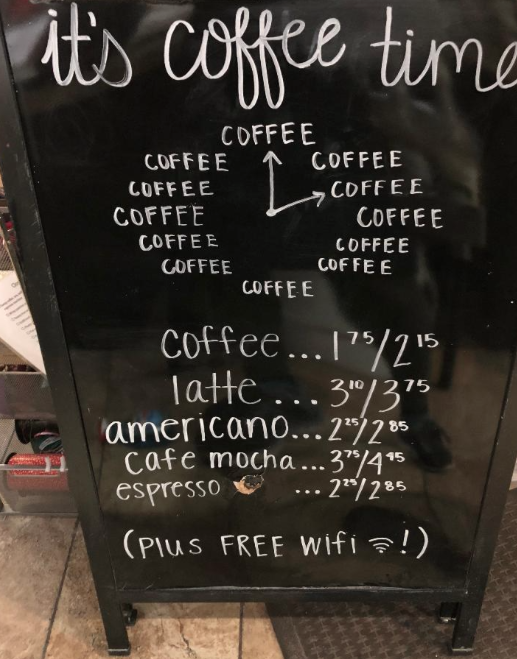 it's coffee time
COFFEE
COFFEE COFFEE
COFFEE COFFEE
COFFEE COFFEE
COFFEE COFFEE
COFFEE COFFEE
COFFEE
coffee...1 75/2 15
latte ...3 10/3 75
americano...2 25/2 85
cafe mocha...3 75/4 45
espresso ...2 25/2 85
(Plus FREE Wifi !)